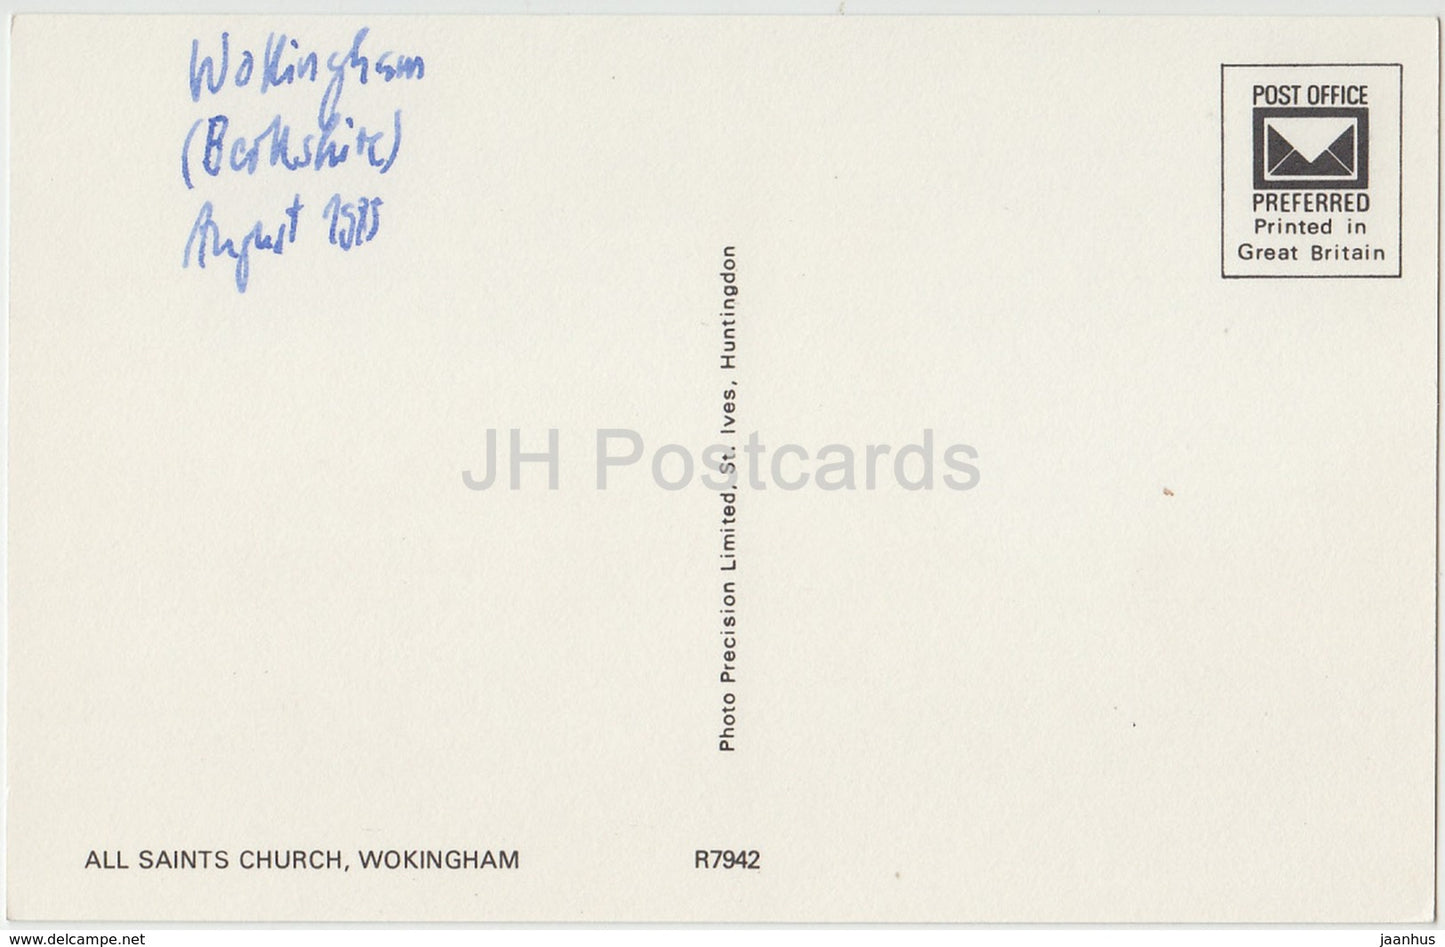 Wokingham
(Berkshire)
August
POST OFFICE
PREFERRED
Printed in
Great Britain
Photo Precision Limited, St. Ives, Huntingdon
JH Postcards
ALL SAINTS CHURCH, WOKINGHAM R7942
www.delcampe.net
jaanhus